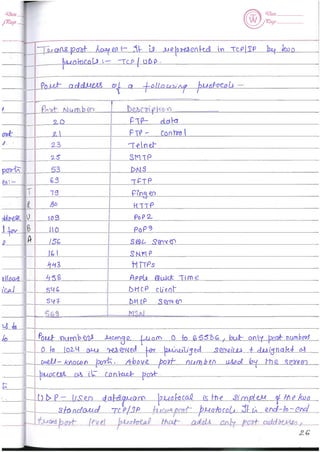 Transport Layer :- It is represented in TCP/IP by two
protocols :- TCP / UDP.
Port address of a following protocols -
Port Number Description
20 FTP - data
21 FTP - Control
23 Telnet
25 SMTP
53 DNS
69 TFTP
79 Finger
80 HTTP
109 POP2
110 POP3
156 SQL Server
161 SNMP
443 HTTPs
458 Apple Quick Time
546 DHCP Client
547 DHCP Server
569 MSN
Port numbers range from 0 to 65536, but only port numbers
0 to 1024 are reserved for priviliged services & designated as
well-known ports. Above port number used by the server
process as its contact port
UDP - User datagram protocol is the simplest of the two
standard TCP/IP transport protocols. It is end-to-end
transport level protocol that adds only port addresses,
26